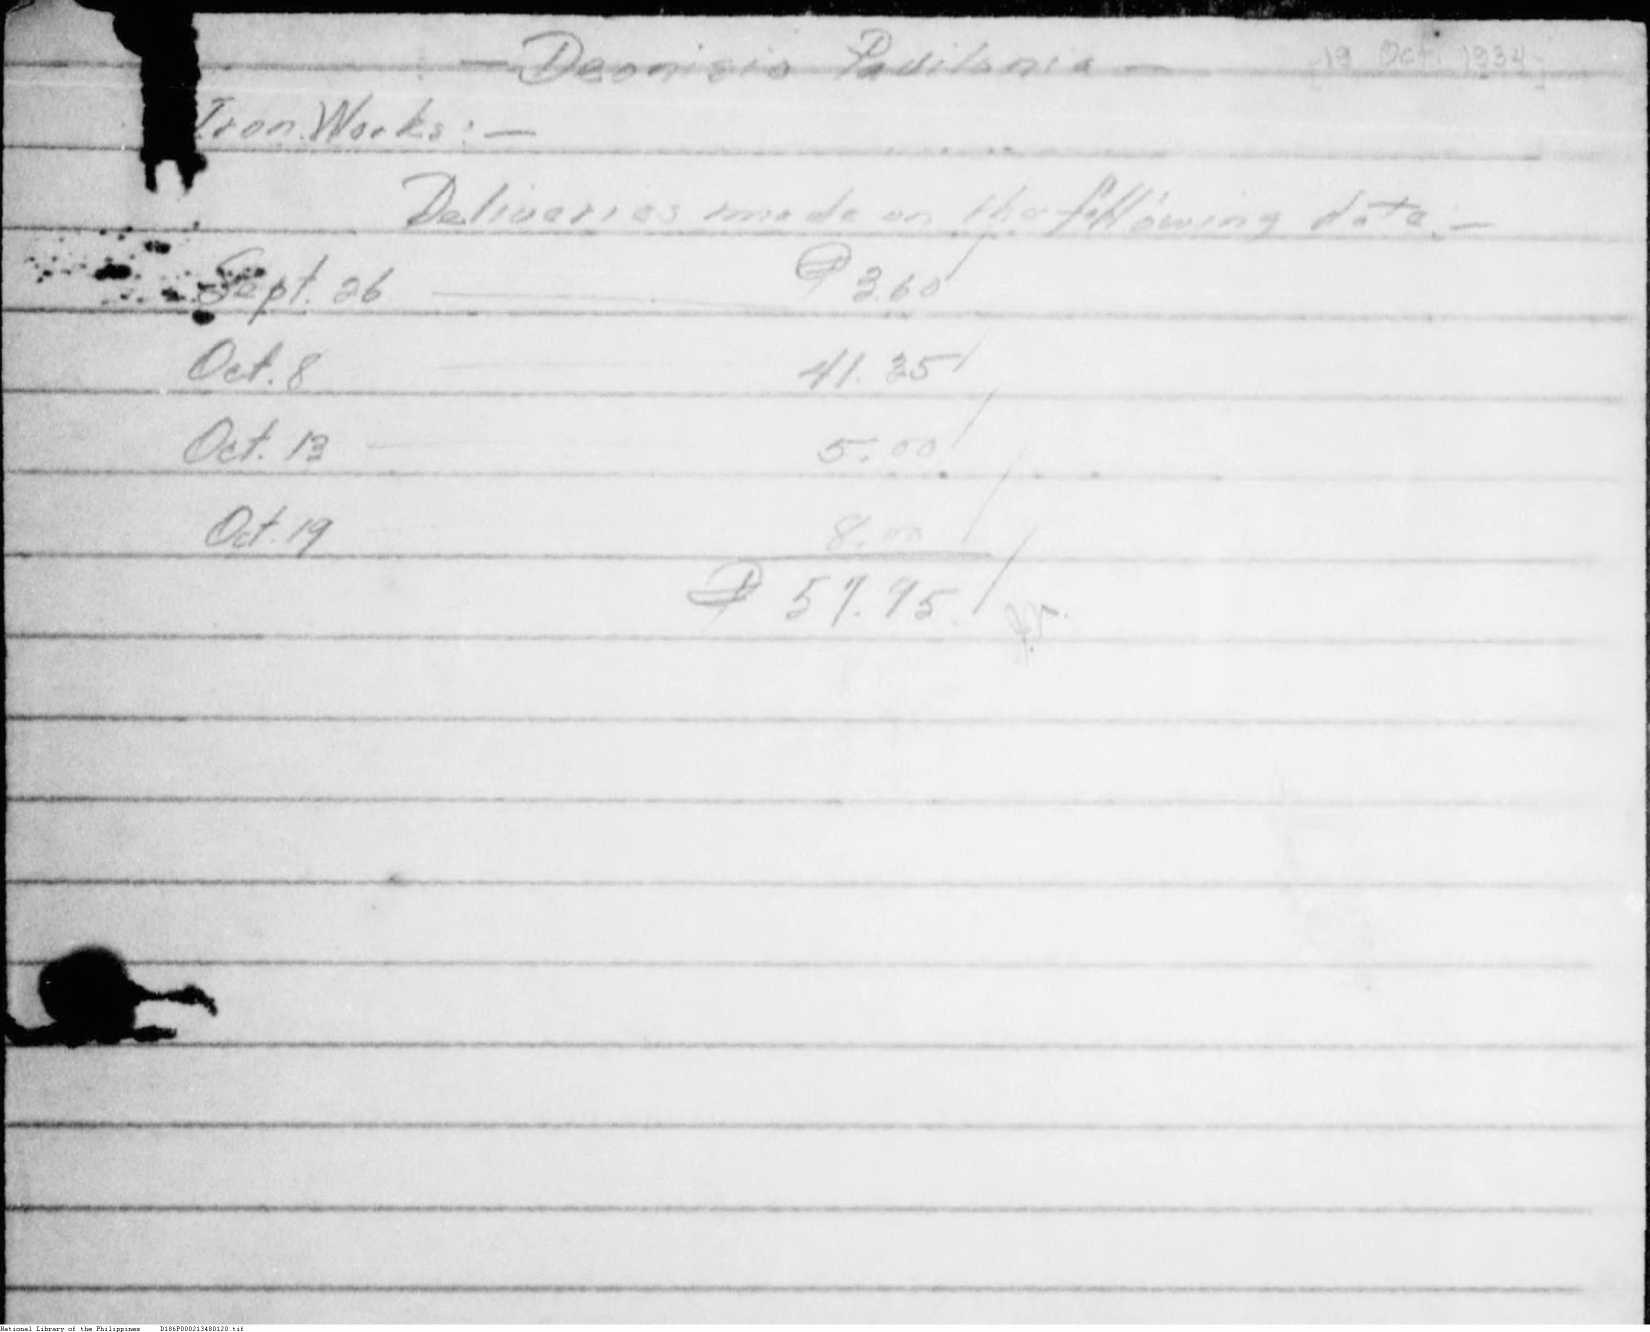 — Deonisio — 19 Oct. 1934
Iron Works: —
Deliveries made on the following date. —
Sept. 26 — ₱ 3.60
Oct. 8 — 41.35
Oct. 13 — 5.00
Oct. 19 8.00
₱ 57.95
National Library of the Philippines D186P000213480120.tif